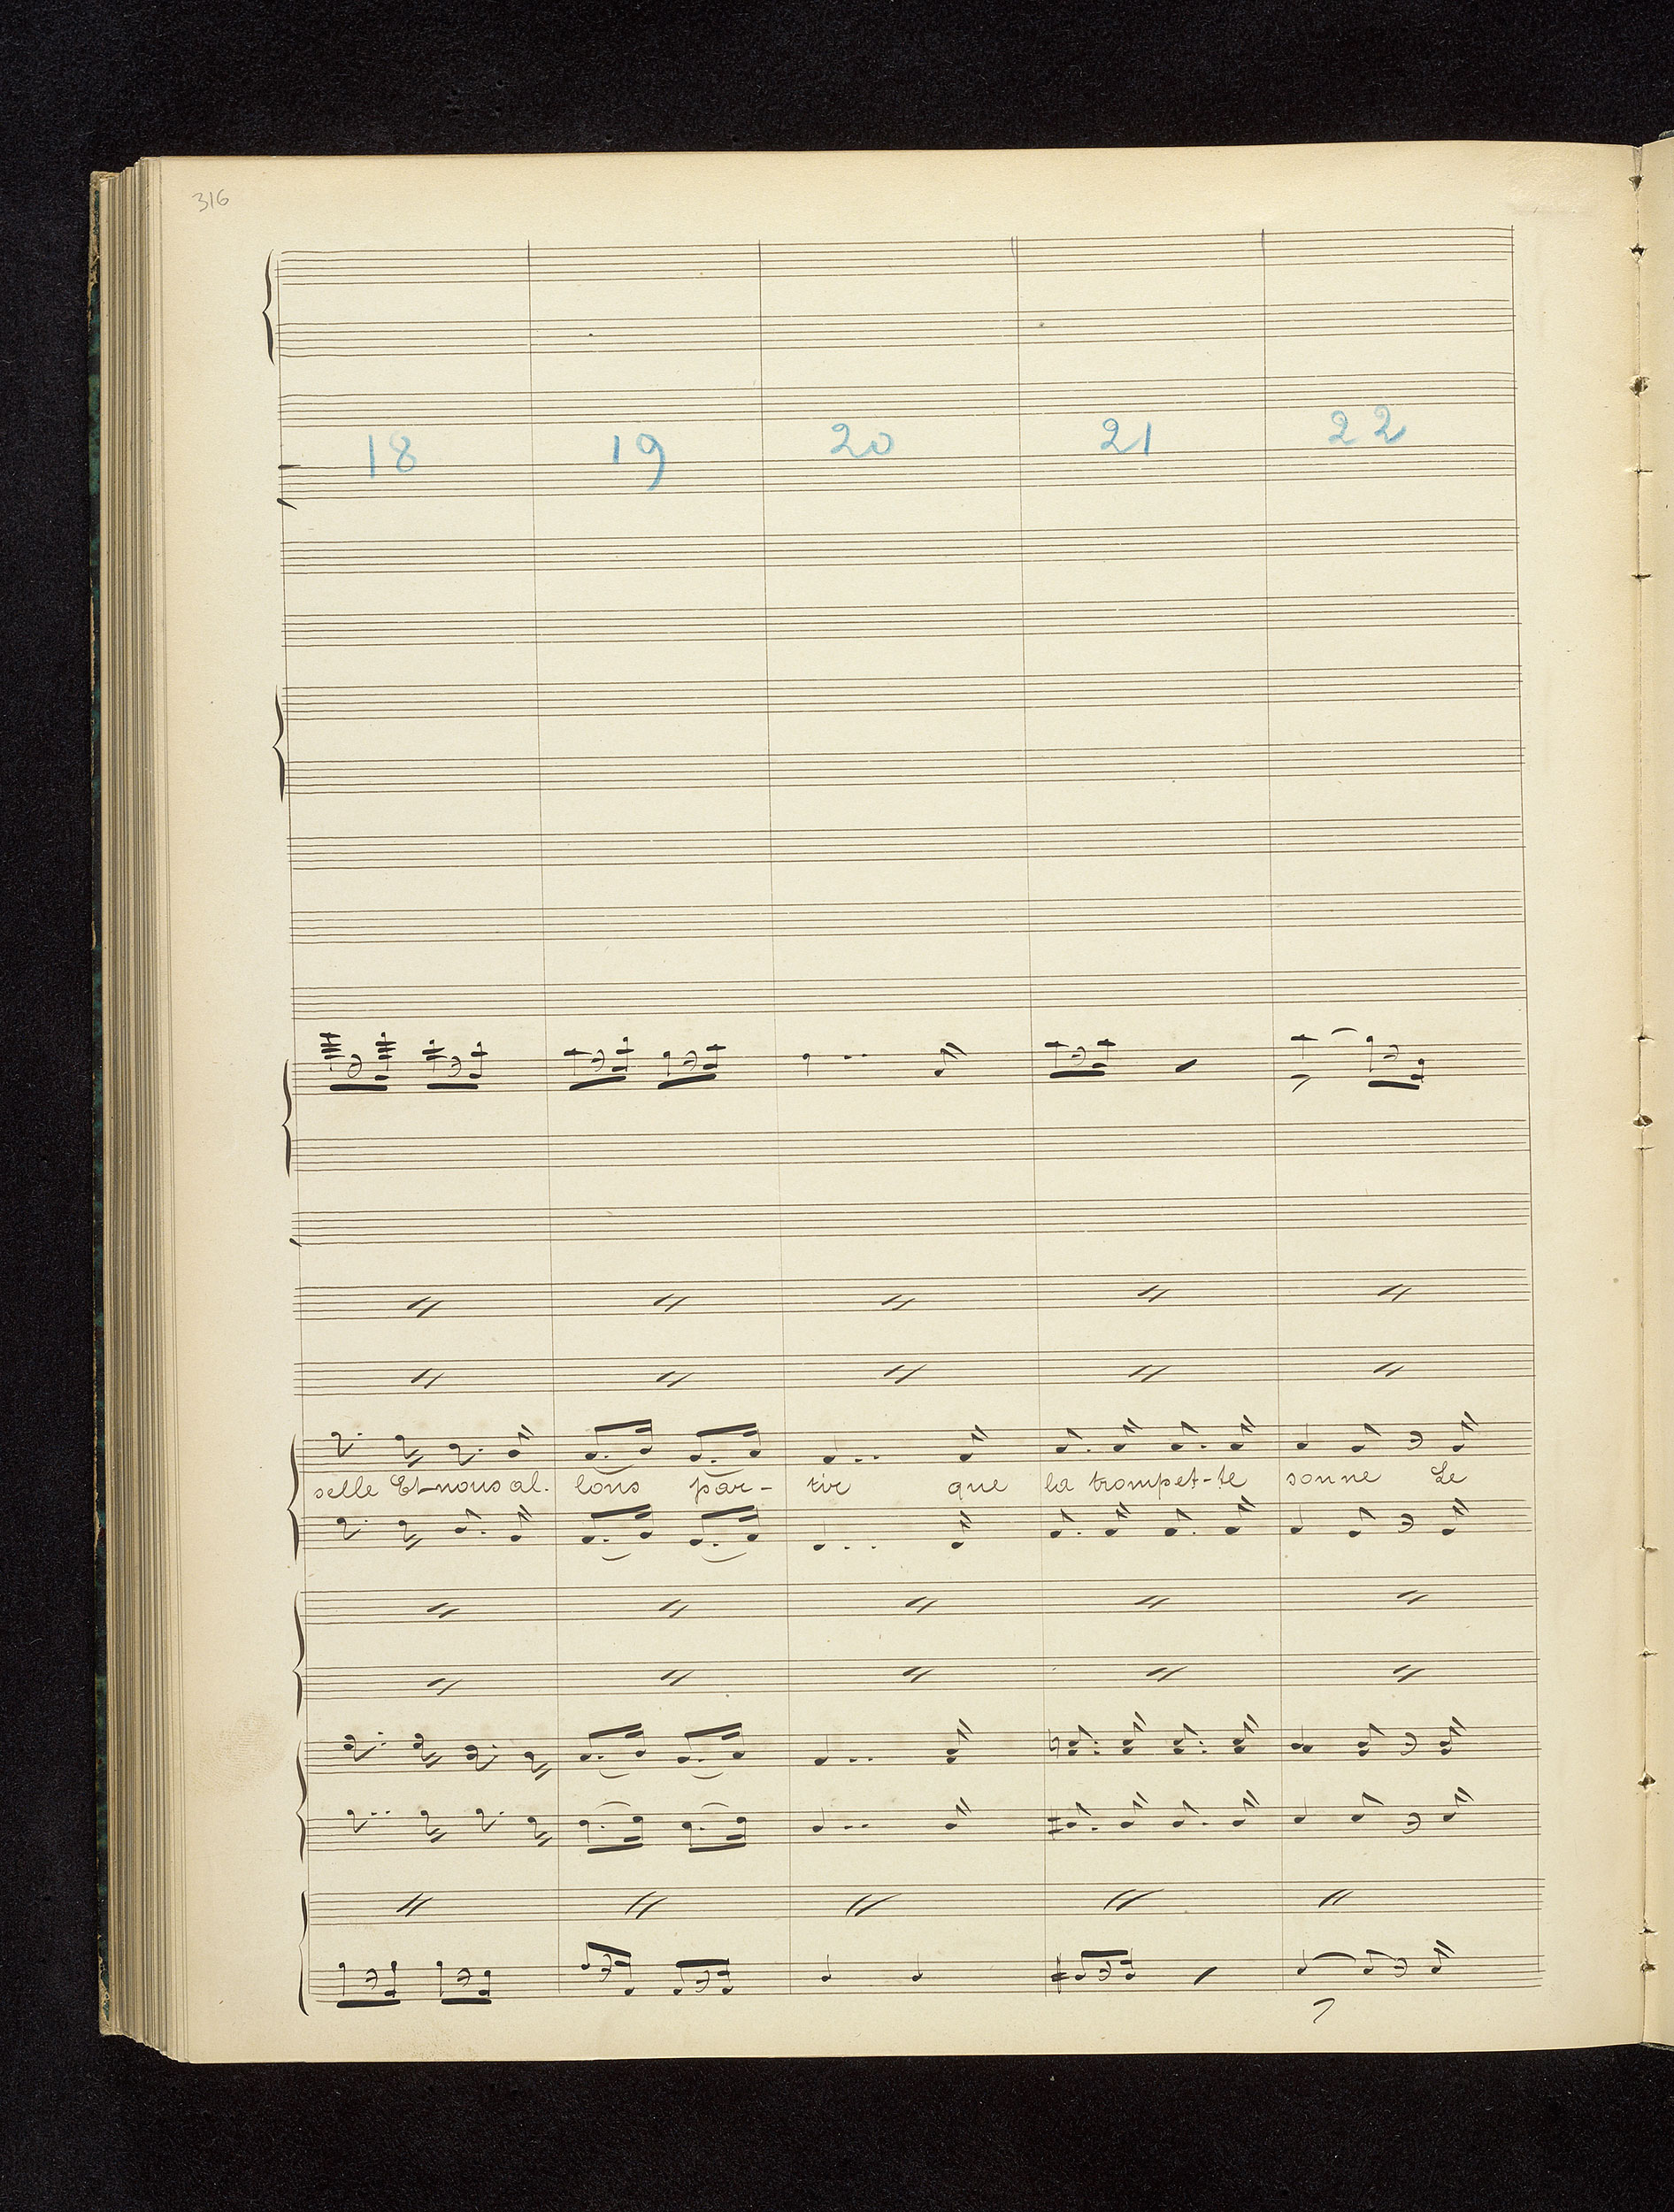 316
18 19 20 21 22
selle Et nous al. lons par- tir que la trompet-te sonne Le